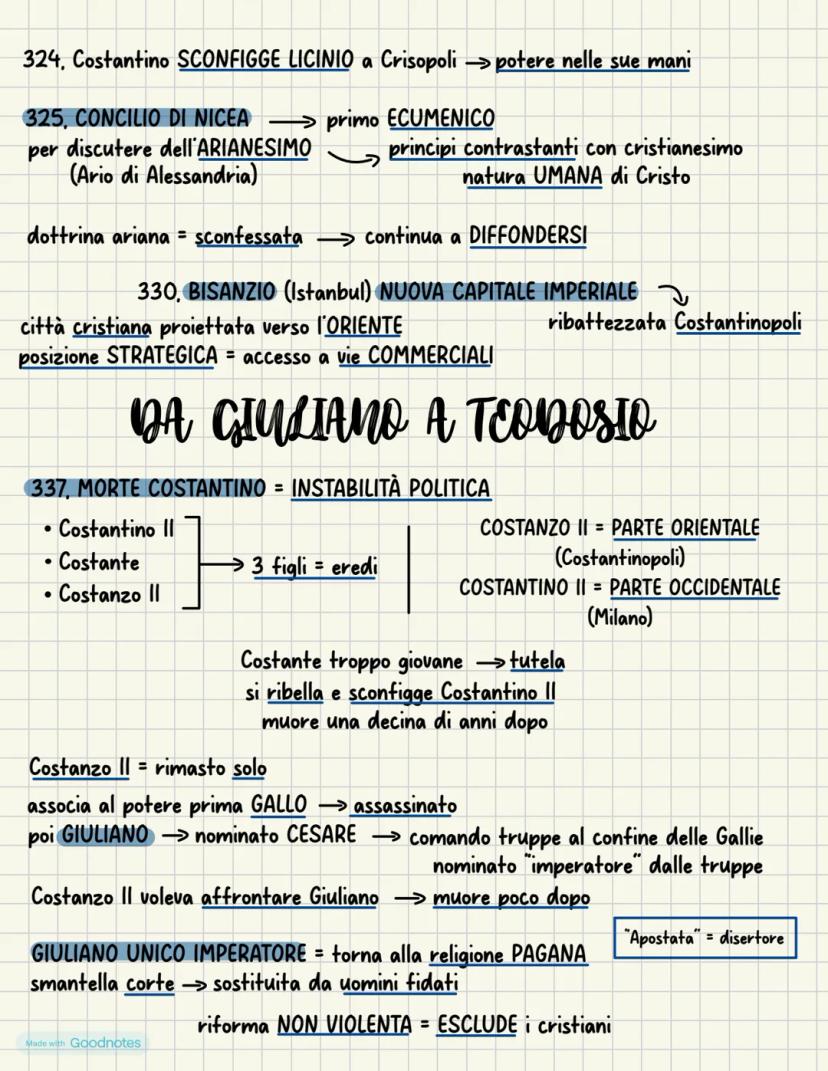 324, Costantino SCONFIGGE LICINIO a Crisopoli → potere nelle sue mani
325, CONCILIO DI NICEA → primo ECUMENICO
per discutere dell'ARIANESIMO → principi contrastanti con cristianesimo
(Ario di Alessandria) natura UMANA di Cristo
dottrina ariana = sconfessata → continua a DIFFONDERSI
330, BISANZIO (Istanbul) NUOVA CAPITALE IMPERIALE →
città cristiana proiettata verso l'ORIENTE ribattezzata Costantinopoli
posizione STRATEGICA = accesso a vie COMMERCIALI
DA GIULIANO A TEODOSIO
337, MORTE COSTANTINO = INSTABILITÀ POLITICA
• Costantino II
• Costante → 3 figli = eredi
• Costanzo II
COSTANZO II = PARTE ORIENTALE
(Costantinopoli)
COSTANTINO II = PARTE OCCIDENTALE
(Milano)
Costante troppo giovane → tutela
si ribella e sconfigge Costantino II
muore una decina di anni dopo
Costanzo II = rimasto solo
associa al potere prima GALLO → assassinato
poi GIULIANO → nominato CESARE → comando truppe al confine delle Gallie
nominato "imperatore" dalle truppe
Costanzo II voleva affrontare Giuliano → muore poco dopo
"Apostata" = disertore
GIULIANO UNICO IMPERATORE = torna alla religione PAGANA
smantella corte → sostituita da uomini fidati
riforma NON VIOLENTA = ESCLUDE i cristiani
Made with Goodnotes